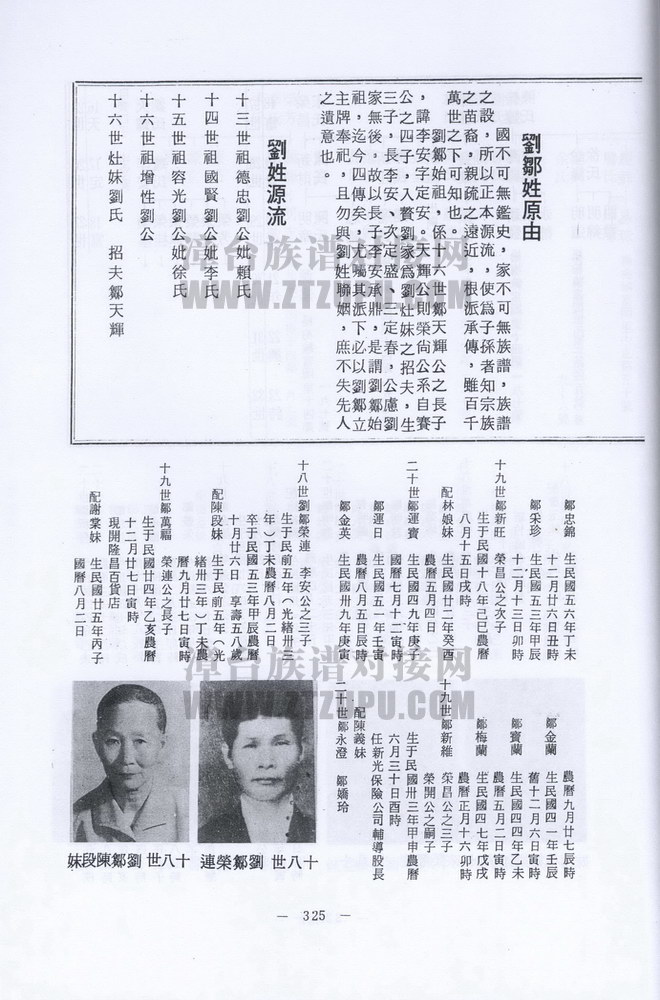 劉鄒姓原由
國不可無鑑史，家不可無族譜，族譜
之設，所以正本源流，使爲子孫者知宗族
之苗裔，親疏之遠近，根派承傳，雖百千
萬世之下可知也。
劉鄒始祖，係十六世鄒天輝公之長子
，諱李安字定安。天輝公則榮尚公系自賽
公之四子，入贅劉家爲劉灶妹之招夫，生
三子，長李安、次定盛、三定春，公慮劉
家無後，故以長子李安承鼎，是謂劉鄒始
祖，迄今四傳矣，尤囑其派下必以劉鄒立
主牌奉祀，且勿與劉姓聯姻，庶不失先人
之遺意也。
劉姓源流
十三世祖德忠劉公妣賴氏
十四世祖國賢劉公妣李氏
十五世祖容光劉公妣徐氏
十六世祖增性劉公
十六世灶妹劉氏　招夫鄒天輝
鄒忠錦　生民國五六年丁未
十二月廿六日丑時
鄒采珍　生民國五三年甲辰
十二月十三日卯時
十九世鄒新旺　榮昌公之次子
生于民國十八年己巳農曆
八月十五日戌時
配林娘妹　生民國廿二年癸酉
農曆五月四日
二十世鄒運寶　生民國四九年庚子
國曆七月十二寅時
鄒運日　生民國五一年壬寅
農曆八月五日辰時
鄒金英　生民國卅九年庚寅
農曆九月廿七辰時
鄒金蘭　生民國四一年壬辰
舊十二月六日寅時
鄒寶蘭　生民國四四年乙未
農曆五月二日寅時
鄒梅蘭　生民國四七年戊戌
農曆正月十六卯時
十九世鄒新維　榮昌公之三子
榮開公之嗣子
生于民國卅三年甲申農曆
六月三十日酉時
任新光保險公司輔導股長
配陳義妹
二十世鄒永澄　鄒嬌玲
十八世劉鄒榮連　李安公之三子
生于民前五年（光緒卅三
年）丁未農曆八月二日
卒于民國五三年甲辰農曆
十月廿六日　享壽五八歲
配陳段妹　生于民前五年（光
緒卅三年）丁未農
曆九月廿七日寅時
十九世鄒萬福　榮連公之長子
生于民國廿四年乙亥農曆
十二月廿七日寅時
現開隆昌百貨店
配謝棠妹　生民國廿五年丙子
國曆八月二日
十八世 劉鄒榮連
十八世 劉鄒陳段妹
— 325 —
漳台族谱对接网
WWW.ZTZUPU.COM
漳台族谱对接网
WWW.ZTZUPU.COM